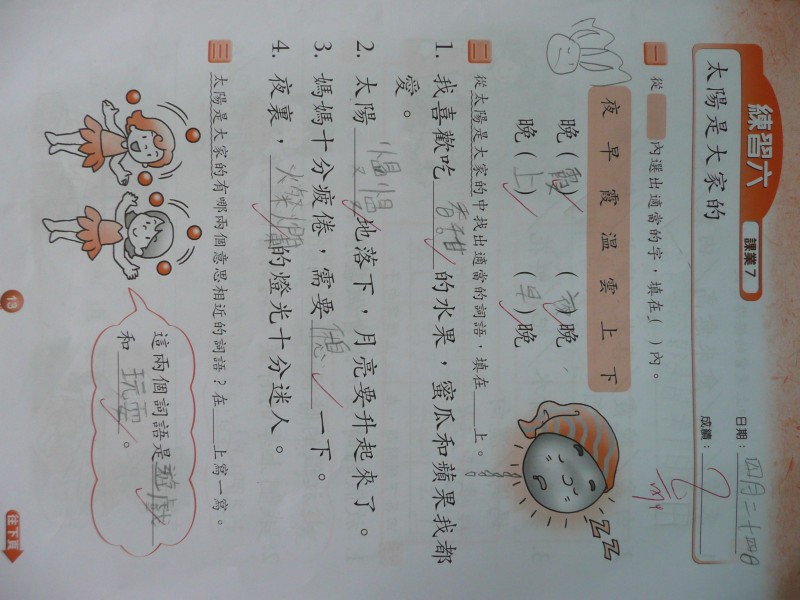 練習六
課業7
太陽是大家的
日期：四月二十四日
成績：
一 從 內選出適當的字，填在( )內。
夜 早 霞 温 雲 上 下
晚(霞) ( )晚
晚(上) (早)晚
二 從太陽是大家的中找出適當的詞語，填在 上。
1. 我喜歡吃香甜的水果，蜜瓜和蘋果我都
愛。
2. 太陽 地落下，月亮要升起來了。
3. 媽媽十分疲倦，需要 一下。
4. 夜裏，火燦爛的燈光十分迷人。
三 太陽是大家的有哪兩個意思相近的詞語？在 上寫一寫。
這兩個詞語是遊戲
和玩耍。
13
往下頁